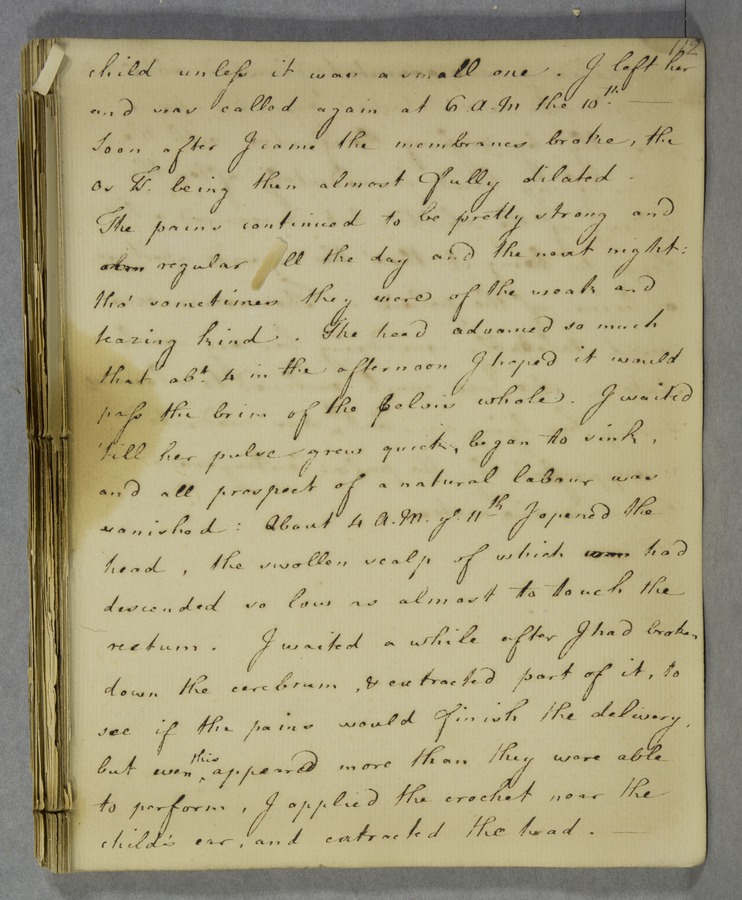 112
child unless it was a small one. I left her
and was called again at 6 A.M the 10th. —
Soon after I came the membranes broke, the
os T. being then almost fully dilated.
The pains continued to be pretty strong and
regular all the day and the next night:
tho' sometimes they were of the weak and
teazing kind. The head advanced so much
that abt. 4 in the afternoon I hoped it would
pass the brim of the pelvis whole. I waited
'till her pulse grew quick, began to sink,
and all prospect of a natural labour was
vanished: About 4 A.M. ye. 11th I opened the
head, the swollen scalp of which had
descended so low as almost to touch the
rectum. I waited a while after I had broken
down the cerebrum, & extracted part of it, to
see if the pains would finish the delivery,
but even this appeared more than they were able
to perform, I applied the crochet near the
child's ear, and extracted the head. —